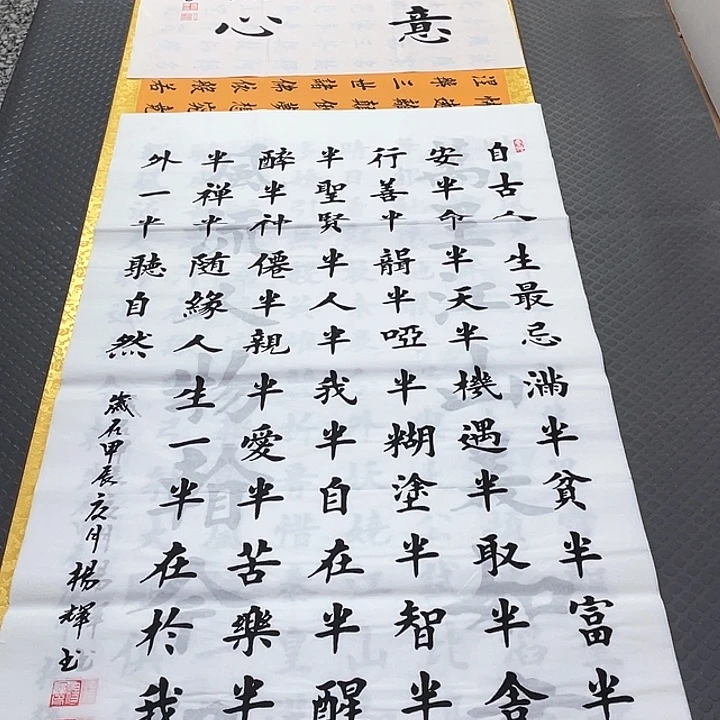 意
心
自古人生最忌滿半貧半富半
安半命半天半機遇半取半舍
行善半聾半啞半糊塗半智半
半聖賢半人半我半自在半醒
醉半神僊半親半愛半苦樂半
半禅半随緣人生一半在於我
外一半聽自然
歲在甲辰月楊輝书